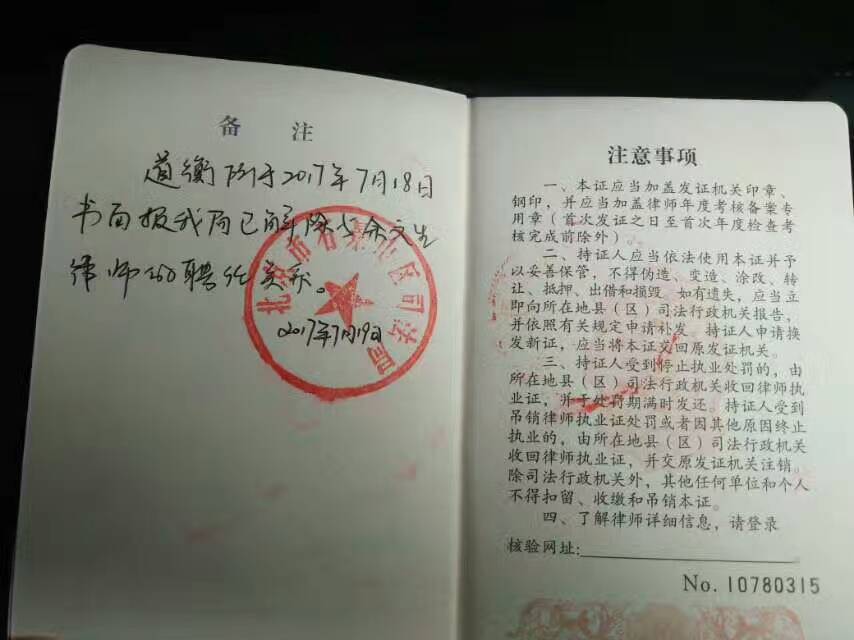 备 注
道衡所于2017年7月18日
书面报我局已解除与余文生
律师的聘任关系。
北京市石景山区司法局
2017年7月19日
注意事项
一、本证应当加盖发证机关印章、
钢印，并应当加盖律师年度考核备案专
用章（首次发证之日至首次年度检查考
核完成前除外）。
二、持证人应当依法使用本证并予
以妥善保管，不得伪造、变造、涂改、转
让、抵押、出借和损毁。如有遗失，应当立
即向所在地县（区）司法行政机关报告，
并依照有关规定申请补发。持证人申请换
发新证，应当将本证交回原发证机关。
三、持证人受到停止执业处罚的，由
所在地县（区）司法行政机关收回律师执
业证，并于处罚期满时发还。持证人受到
吊销律师执业证处罚或者因其他原因终止
执业的，由所在地县（区）司法行政机关
收回律师执业证，并交原发证机关注销。
除司法行政机关外，其他任何单位和个人
不得扣留、收缴和吊销本证。
四、了解律师详细信息，请登录
核验网址：
No. 10780315